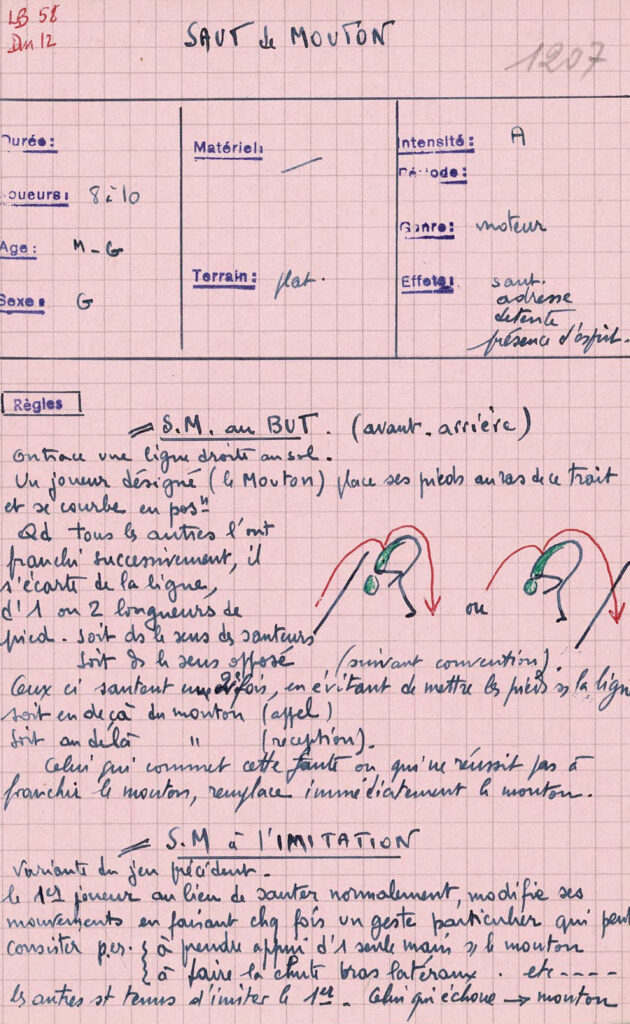 LB 58
Dm 12
SAUT de MOUTON
1207
Durée:
Joueurs: 8 à 10
Age: M - G
Sexe: G
Matériel: /
Terrain: plat.
Intensité: A
Période:
Genre: moteur
Effets: saut.
adresse
détente
présence d'esprit.
Règles
S.M. au BUT. (avant. arrière)
On trace une ligne droite au sol.
Un joueur désigné (le Mouton) place ses pieds au ras de ce trait
et se courbe en posn
Qd tous les autres l'ont
franchi successivement, il
s'écarte de la ligne,
d'1 ou 2 longueurs de
pied. soit ds le sens des sauteurs
ou
soit ds le sens opposé (suivant convention).
Ceux ci sautent une 2e fois, en évitant de mettre les pieds s/ la ligne
soit en deçà du mouton (appel)
soit au delà " (réception).
Celui qui commet cette faute ou qui ne réussit pas à
franchir le mouton, remplace immédiatement le mouton.
S.M à l'IMITATION
Variante du jeu précédent.
le 1er joueur au lieu de sauter normalement, modifie ses
mouvements en faisant chq fois un geste particulier qui peut
consister p.ex. { à prendre appui d'1 seule main s/ le mouton
à faire la chute bras latéraux. etc ----
les autres st tenus d'imiter le 1er. Celui qui échoue → mouton